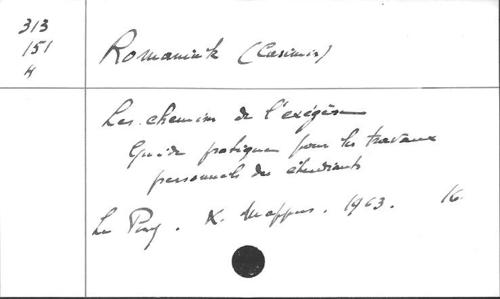 313
151
K
Romaniuk (Casimir)
Les chemins de l'exégèse
Guide pratique pour les travaux
personnels des étudiants
Le Puy. X. Mappus. 1963. 16